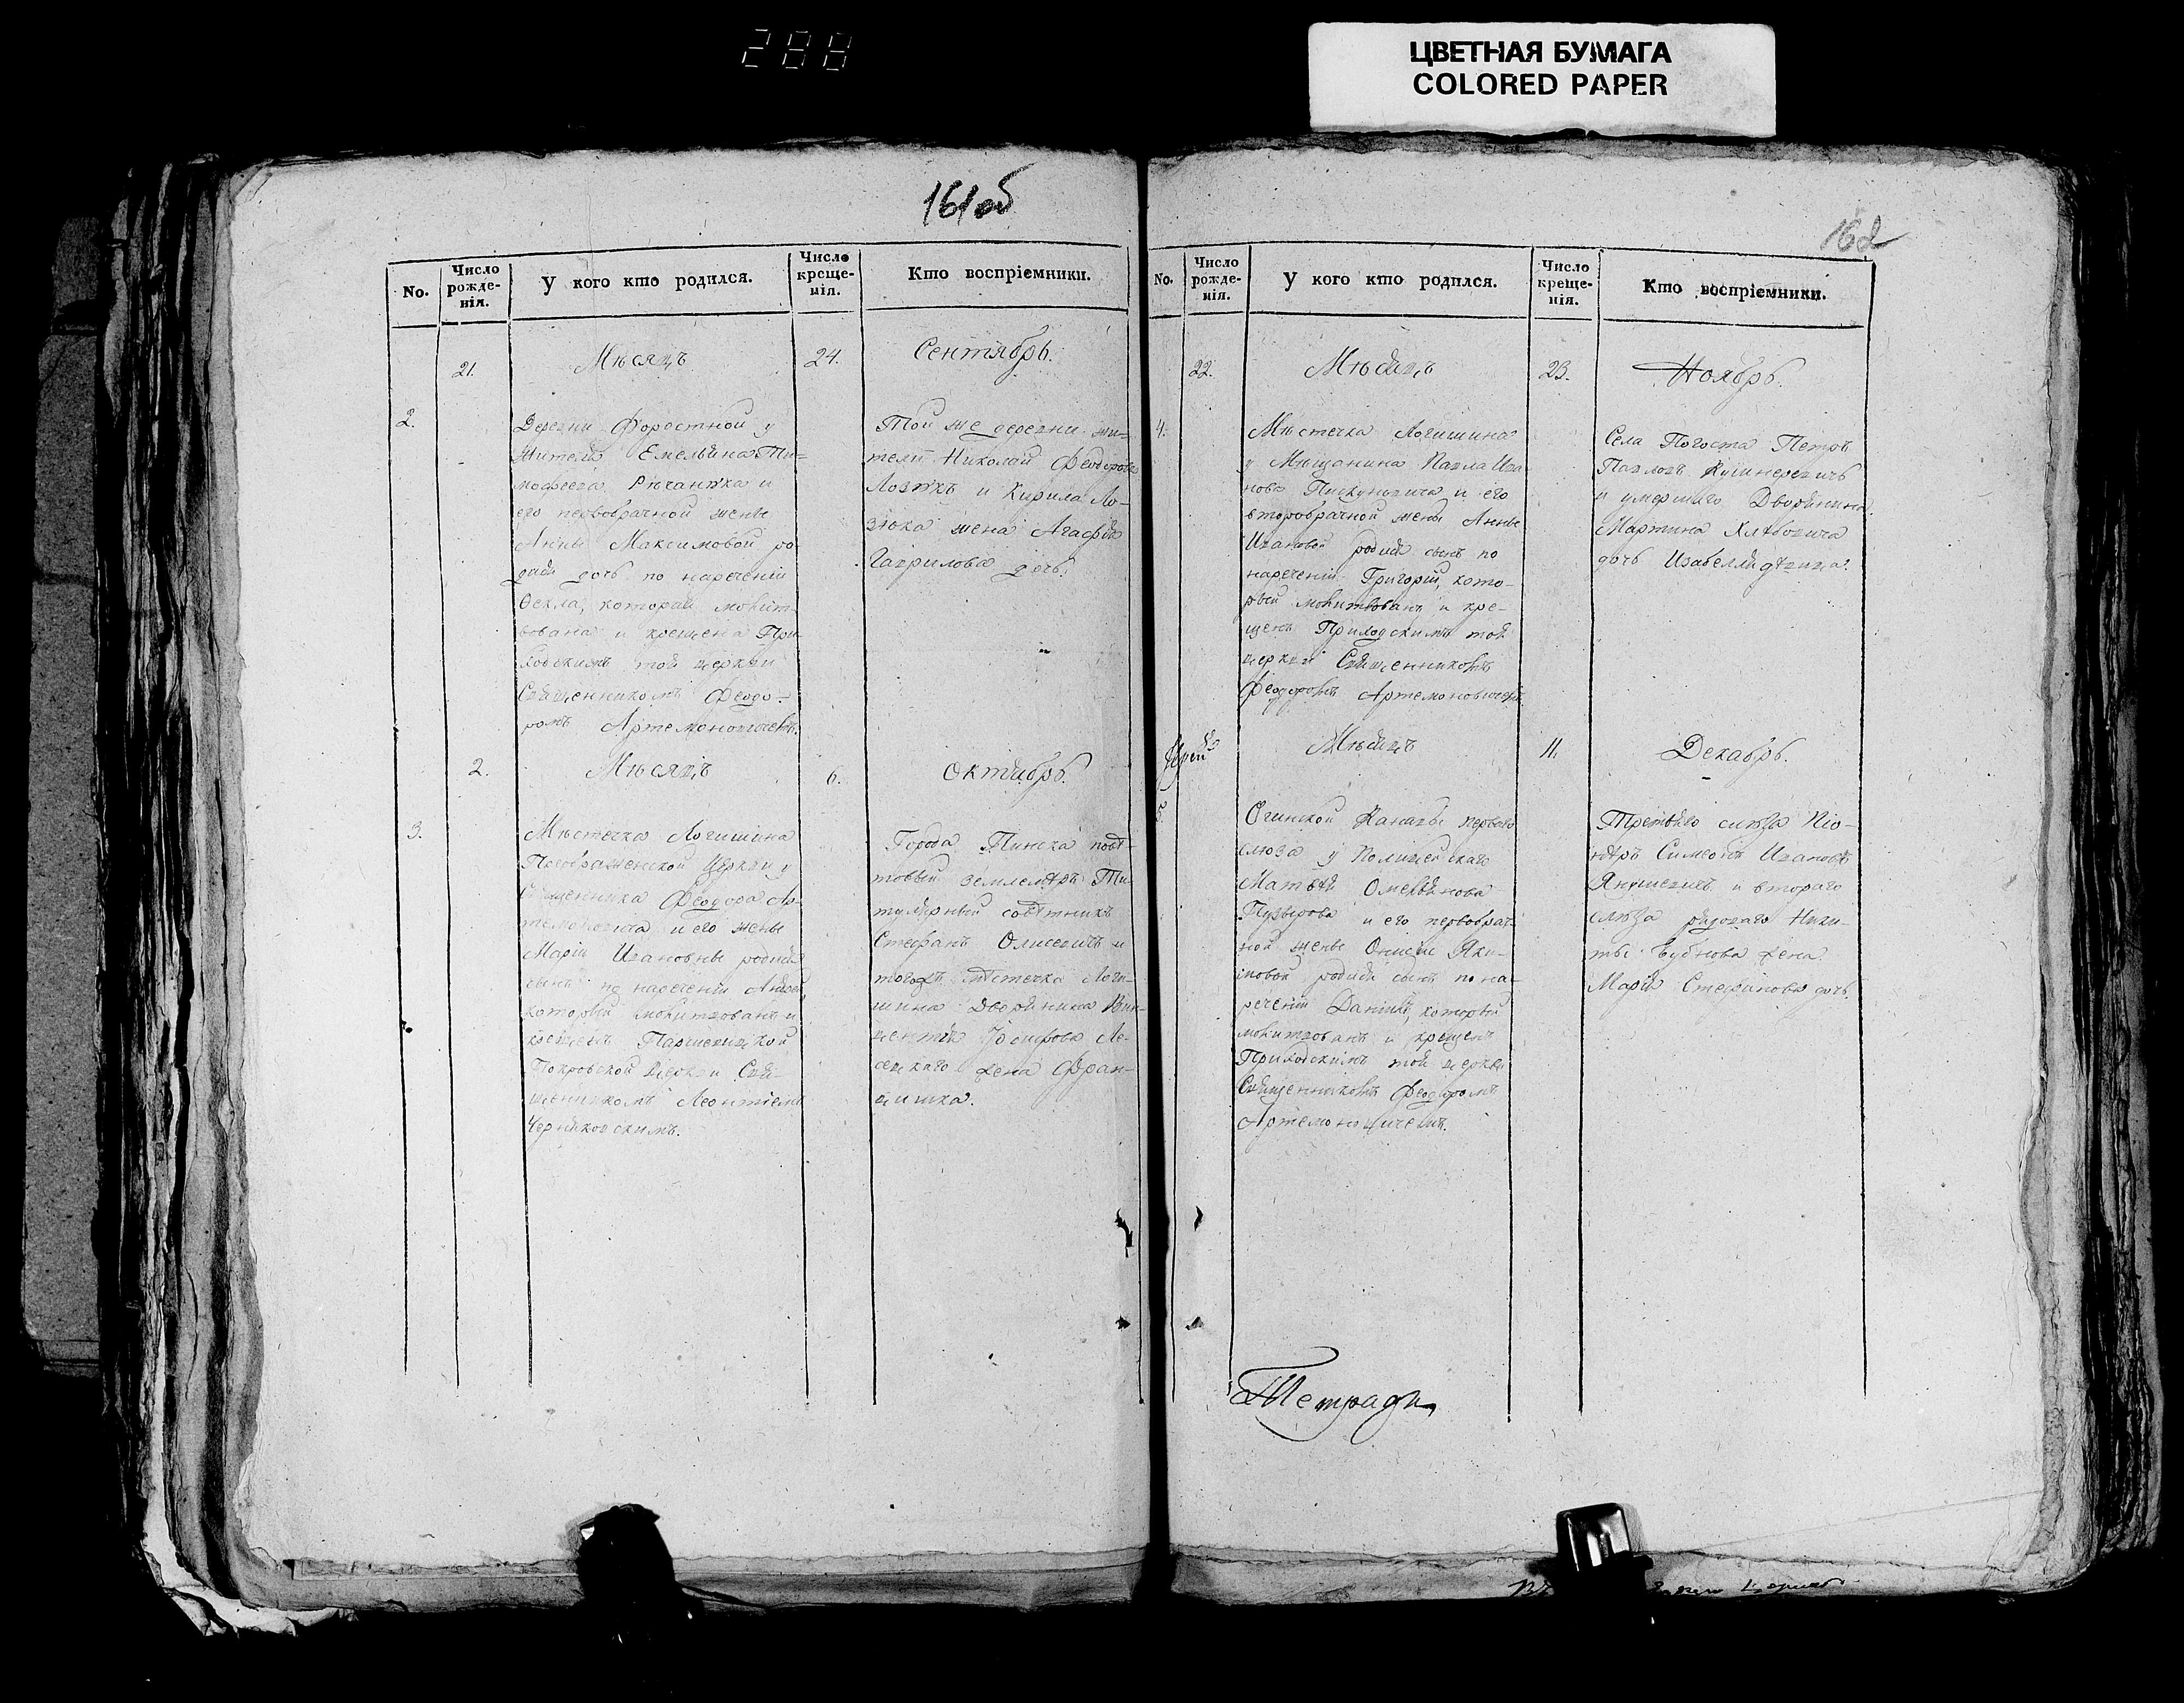 288
ЦВЕТНАЯ БУМАГА
COLORED PAPER
161об
No.
Число рожде-нія.
У кого кто родился.
Число креще-нія.
Кто воспріемники.
21.
Мѣсяцъ
24.
Сентябрь.
2.
Деревни Форостной у
жителя Емельяна Ти-
мофеева Рѣчан
его первобрачной жены
Анны Максимовой ро-
дила дочь по нареченіи
Ѳекла, которая молит-
вована и крещена При-
ходскимъ той церкви
Священникомъ Феодо-
ромъ Артемоновичемъ.
Той же деревни жи-
тели Николай Феодоровъ
и Кирила Ло-
зюка жена Агафія
Гаврилова дочь.
2.
Мѣсяцъ
6.
Октябрь.
3.
Мѣстечка Логишина
Преображенской Церкви у
Священника Феодора Ар-
темоновича и его жены
Маріи Ивановны родился
сынъ по нареченіи
который молитвованъ и
крещенъ
Покровской Церкви Свя-
щенникомъ Леонтіемъ
Города Пинска повѣ-
товый землемѣръ Ти-
тулярный совѣтникъ
Стефанъ и
тогожъ мѣстечка Логи-
шина Дворянина Вин-
центія Іосифова
жена Фран-
цишка.
162
No.
Число рожде-нія.
У кого кто родился.
Число креще-нія.
Кто воспріемники.
22.
Мѣсяцъ
23.
Ноябрь.
4.
Мѣстечка Логишина
у Мѣщанина Павла Ива-
нова Пискуновича и его
второбрачной жены Анны
Ивановой родился сынъ по
нареченіи Григорій, кото-
рый молитвованъ и кре-
щенъ Приходскимъ той
церкви Священникомъ
Феодоромъ Артемоновичемъ
Села Погоста Петръ
Павловъ Кушнеревичъ
и умершаго Дворянина
Мартина Хлѣбовича
дочь Изабелля дѣвица.
Мѣсяцъ
11.
Декабрь.
5.
Огинской Каналы перваго
слюза у
Матвѣя Омельянова
Пузырова и его первобрач-
ной жены Онисіи Яки-
мовой родился сынъ по на-
реченіи Даніилъ, который
молитвованъ и крещенъ
Приходскимъ той церкви
Священникомъ Феодоромъ
Артемоновичемъ.
Третьяго слюза Піо-
нѣръ Симеонъ Ивановъ
Янушевичъ и втораго
слюза рядоваго Ники-
ты Бубнова жена
Марія Стефанова дочь.
Тетради